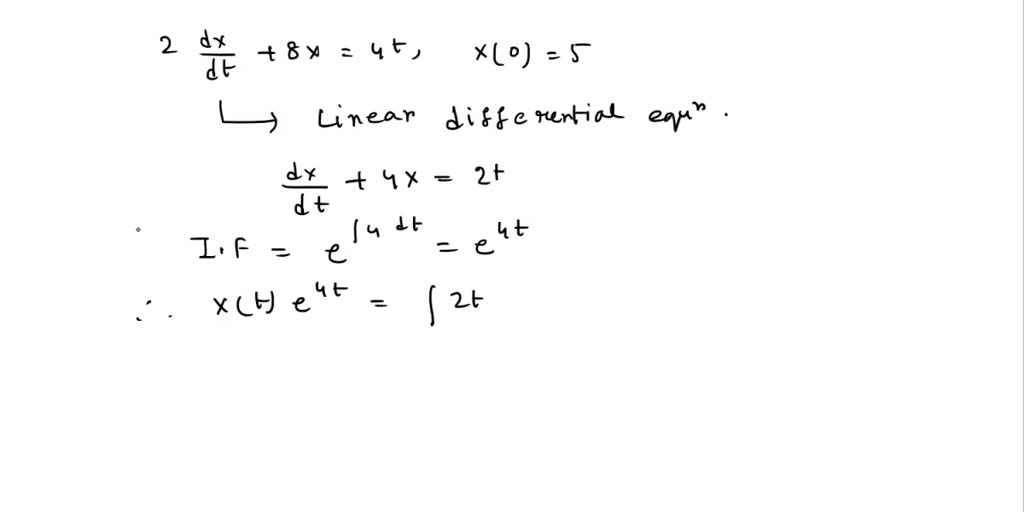 2 dx/dt + 8x = 4t, x(0) = 5
↳ Linear differential equⁿ.
dx/dt + 4x = 2t
I.F = e^∫4 dt = e^4t
∴ x(t) e^4t = ∫ 2t